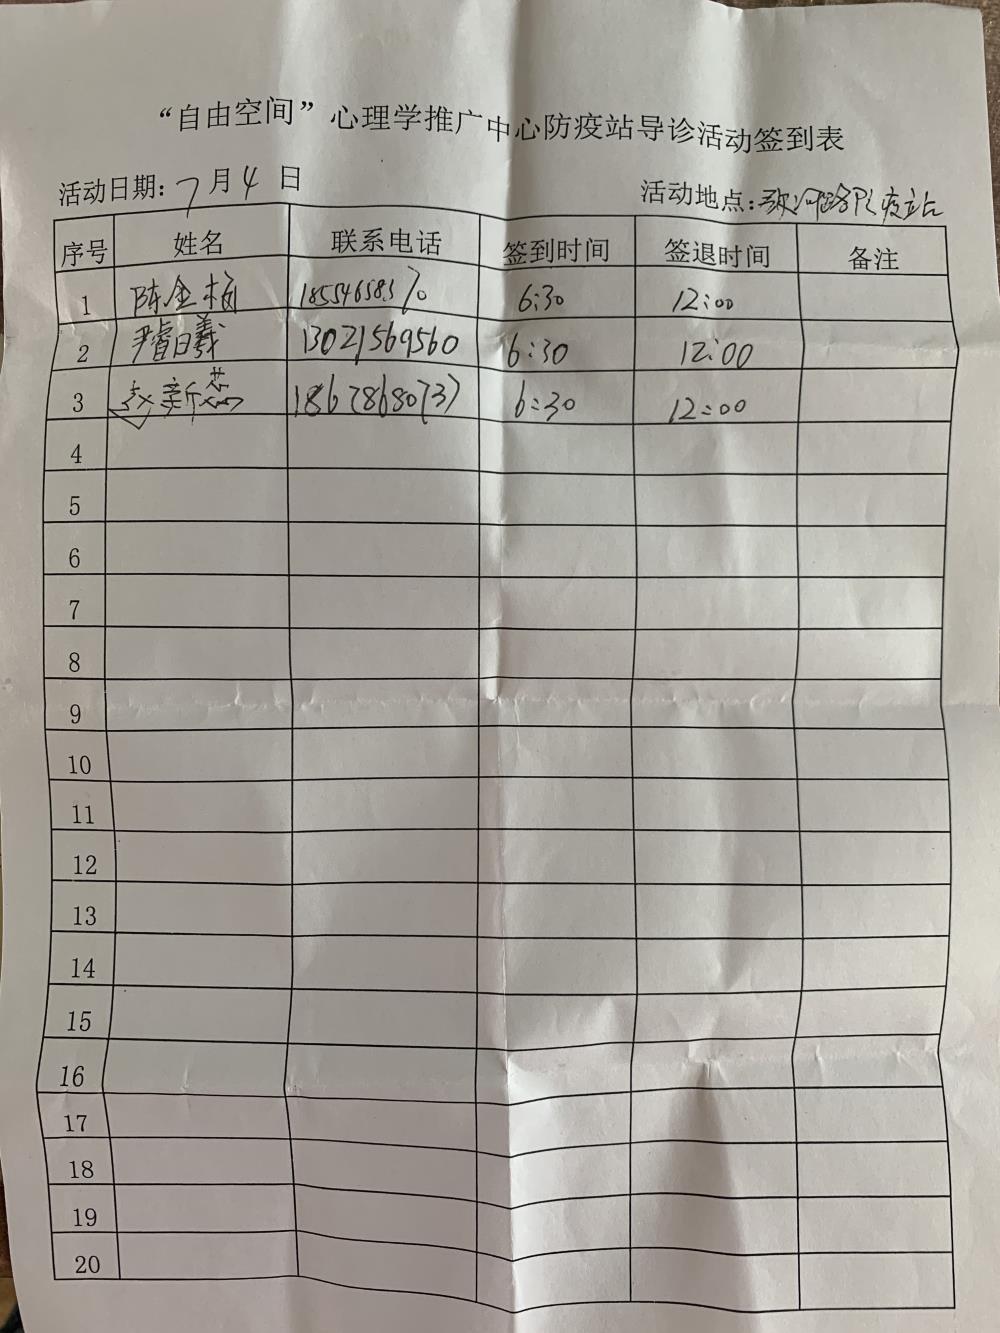 “自由空间”心理学推广中心防疫站导诊活动签到表
活动日期：7月4日 活动地点：
序号 姓名 联系电话 签到时间 签退时间 备注
1 陈金梅 6:30 12:00
2 尹睿曦 13021569560 6:30 12:00
3 赵新蕊 6:30 12:00
4
5
6
7
8
9
10
11
12
13
14
15
16
17
18
19
20